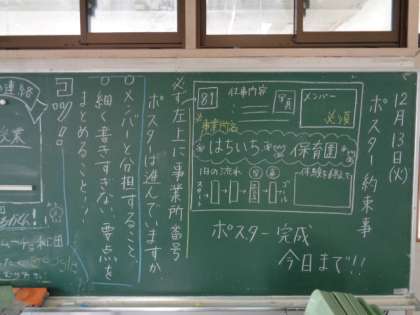 12月13日(火)
ポスター約束事
81
仕事内容
写真
メンバー
必須
事業所名
はちいち
保育園
1日の流れ
スタート
ゴール
体験を終えて
ポスター完成
今日まで!!
必ず左上に事業所番号
ポスターは進んでいますか
○メンバーと分担すること、
○細く書きすぎない、要点を
まとめること…!
コツ!!
連絡